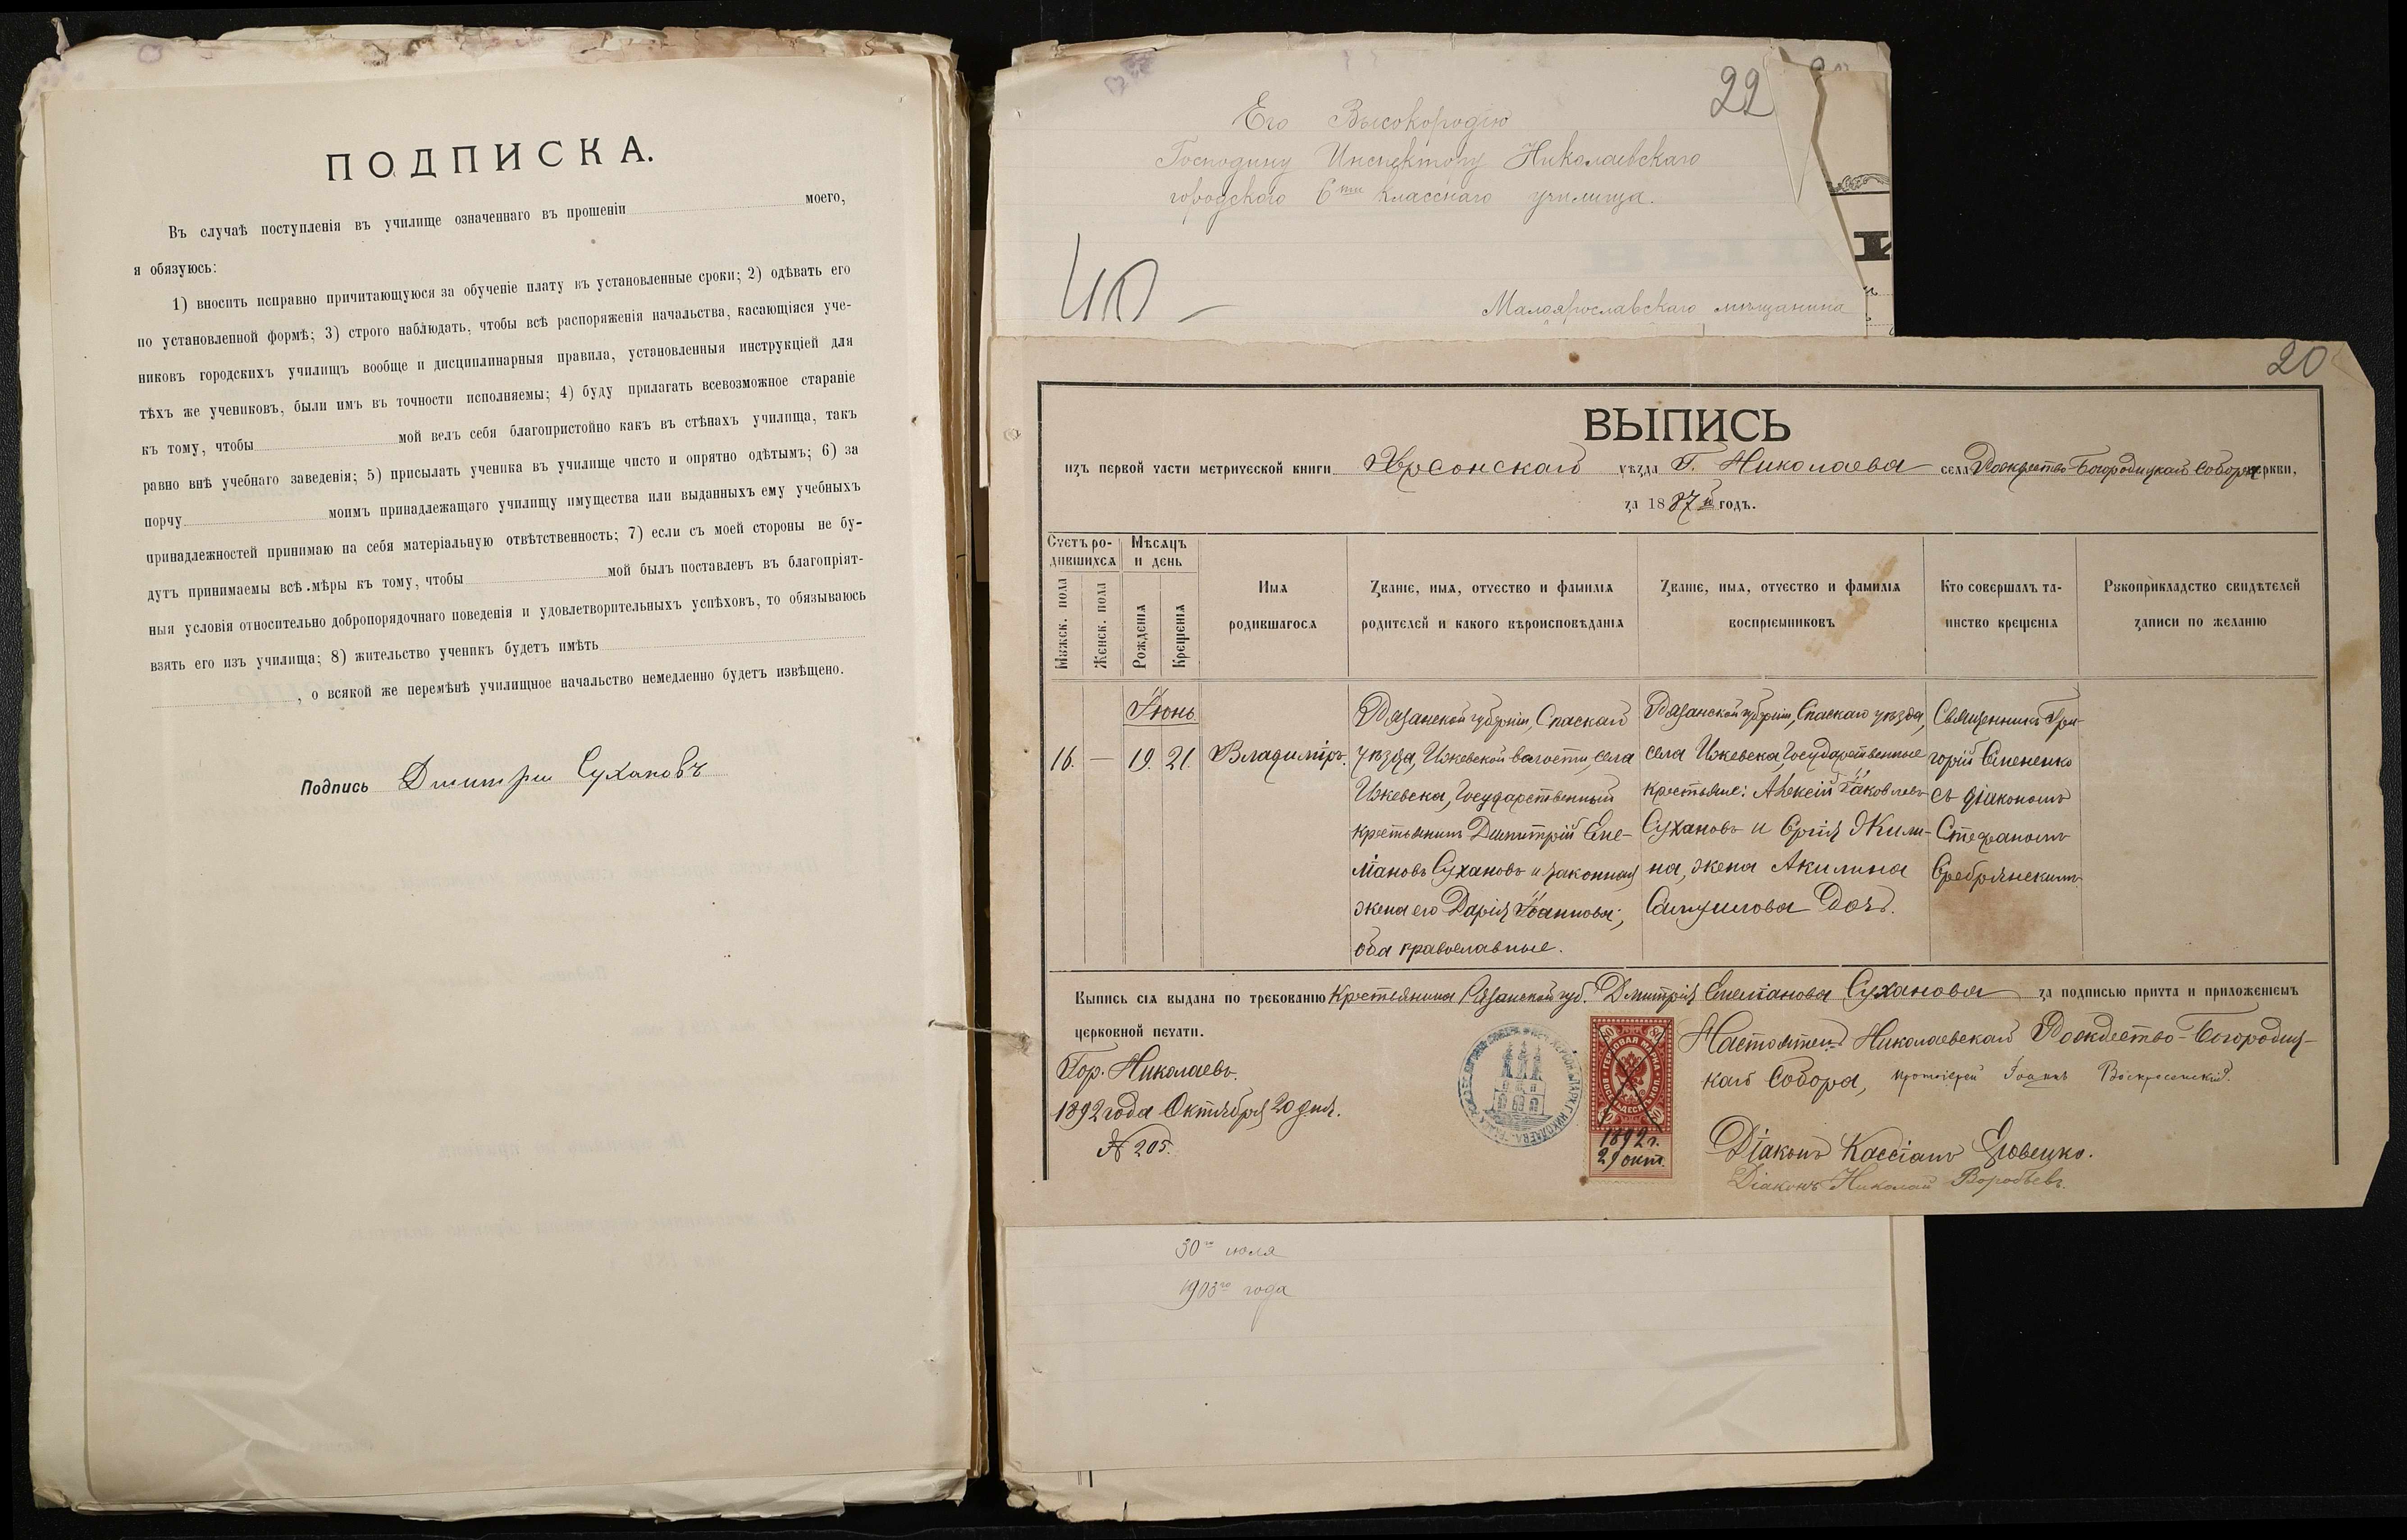 ПОДПИСКА.
Въ случаѣ поступленія въ училище означеннаго въ прошеніи моего,
я обязуюсь:
1) вносить исправно причитающуюся за обученіе плату въ установленные сроки; 2) одѣвать его
по установленной формѣ; 3) строго наблюдать, чтобы всѣ распоряженія начальства, касающіяся уче-
никовъ городскихъ училищъ вообще и дисциплинарныя правила, установленныя инструкціей для
тѣхъ же учениковъ, были имъ въ точности исполняемы; 4) буду прилагать всевозможное стараніе
къ тому, чтобы мой велъ себя благопристойно какъ въ стѣнахъ училища, такъ
равно внѣ учебнаго заведенія; 5) присылать ученика въ училище чисто и опрятно одѣтымъ; 6) за
порчу моимъ принадлежащаго училищу имущества или выданныхъ ему учебныхъ
принадлежностей принимаю на себя матеріальную отвѣтственность; 7) если съ моей стороны не бу-
дутъ принимаемы всѣ мѣры къ тому, чтобы мой былъ поставленъ въ благопріят-
ныя условія относительно добропорядочнаго поведенія и удовлетворительныхъ успѣховъ, то обязываюсь
взять его изъ училища; 8) жительство ученикъ будетъ имѣть
, о всякой же перемѣнѣ училищное начальство немедленно будетъ извѣщено.
Подпись Дмитри Сухановъ
22
Его Высокородію
Господину Инспектору Николаевскаго
городского 6ти класснаго училища.
Малоярославскаго мѣщанина
20
ВЫПИСЬ
изъ первой части метрической книги Херсонскаго уѣзда Г. Николаева села Рождество-Богородицкаго Собора церкви,
за 1887й годъ.
Счетъ ро-
дившихся
Мужск. пола
Женск. пола
Мѣсяцъ
и день
Рожденія
Крещенія
Имя
родившагося
Званіе, имя, отчество и фамилія
родителей и какого вѣроисповѣданія
Званіе, имя, отчество и фамилія
воспріемниковъ
Кто совершалъ та-
инство крещенія
Рукоприкладство свидѣтелей
записи по желанію
16.
—
Іюнь
19. 21.
Владиміръ.
Рязанской губерніи, Спаскаго
уѣзда, Ижевской волости, села
Ижевска, Государственный
крестьянинъ Димитрій Епе-
міановъ Сухановъ и законная
жена его Дарія Іоаннова;
оба православные.
Рязанской губерніи, Спаскаго уѣзда,
села Ижевска, Государственные
крестьяне: Алексій Іаковлевъ
Сухановъ и Сергія Жили-
на, жена Акилина
Самуилова Дочь.
Священникъ Гри-
горій Семененко
съ діакономъ
Стефаномъ
Сребрянскимъ
Выпись сія выдана по требованію Крестьянина Рязанской губ. Дмитрія Епеміанова Суханова за подписью причта и приложеніемъ
церковной печати.
Гор. Николаевъ.
1892 года Октября 20 дня.
№ 205.
80
ГЕРБОВАЯ МАРКА
ВОСЕМЬДЕСЯТЪ КОП.
1892 г.
29 окт.
Николаевской Рождество-Богородиц-
каго Собора, протоіерей Іоаннъ Воскресенскій.
Діаконъ Кассіанъ
Діаконъ Николай Воробьевъ.
30го июля
1903го года